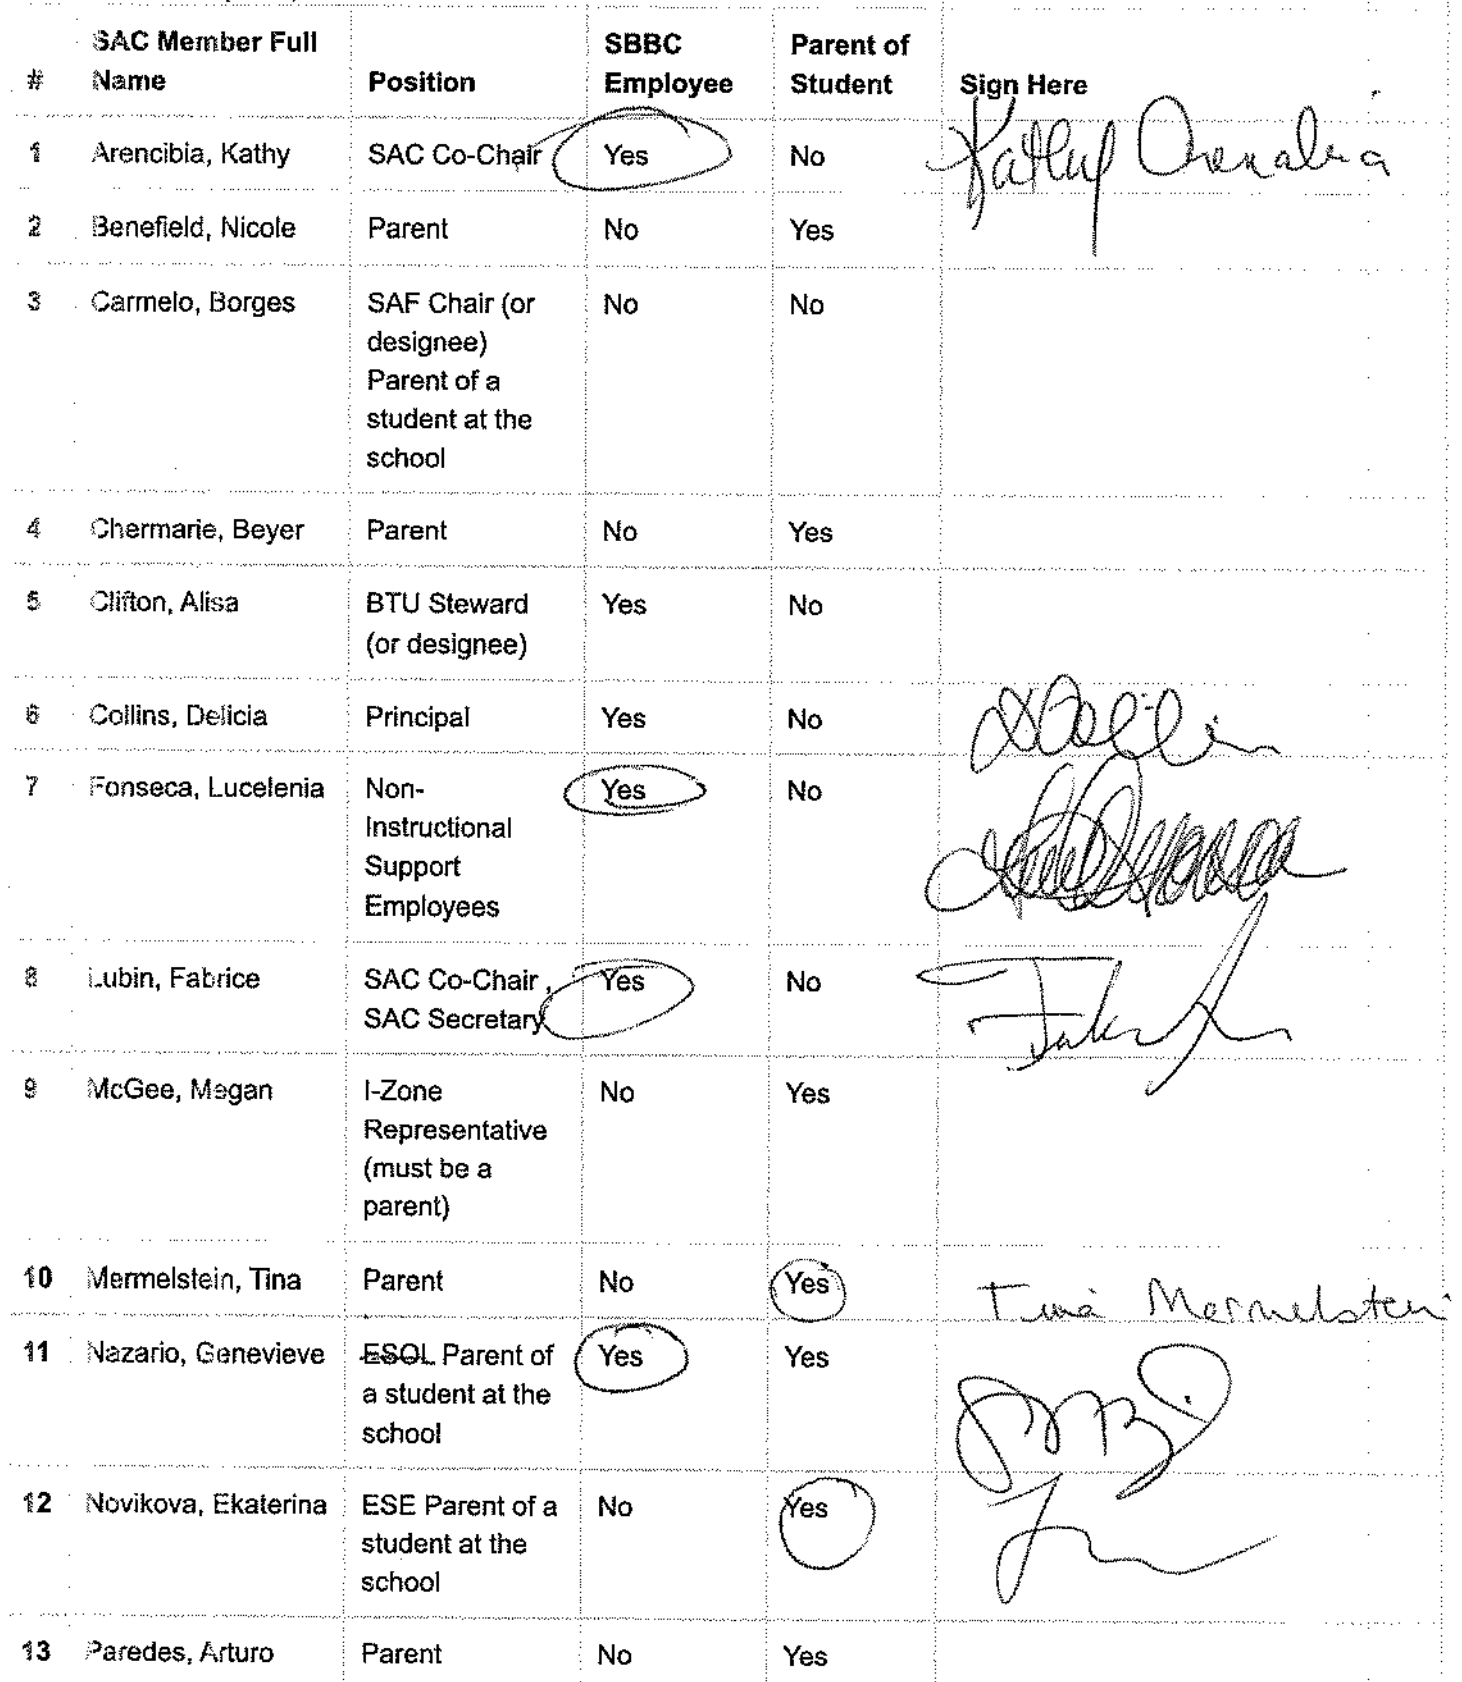 SAC Member Full SBBC Parent of
# Name Position Employee Student Sign Here
1 Arencibia, Kathy SAC Co-Chair Yes No Kathy Arencibia
2 Benefield, Nicole Parent No Yes
3 Carmelo, Borges SAF Chair (or No No
designee)
Parent of a
student at the
school
4 Chermarie, Beyer Parent No Yes
5 Clifton, Alisa BTU Steward Yes No
(or designee)
6 Collins, Delicia Principal Yes No
7 Fonseca, Lucelenia Non- Yes No
Instructional
Support
Employees
8 Lubin, Fabrice SAC Co-Chair , Yes No
SAC Secretary
9 McGee, Megan I-Zone No Yes
Representative
(must be a
parent)
10 Mermelstein, Tina Parent No Yes Tina Mermelstein
11 Nazario, Genevieve ESOL Parent of Yes Yes
a student at the
school
12 Novikova, Ekaterina ESE Parent of a No Yes
student at the
school
13 Paredes, Arturo Parent No Yes